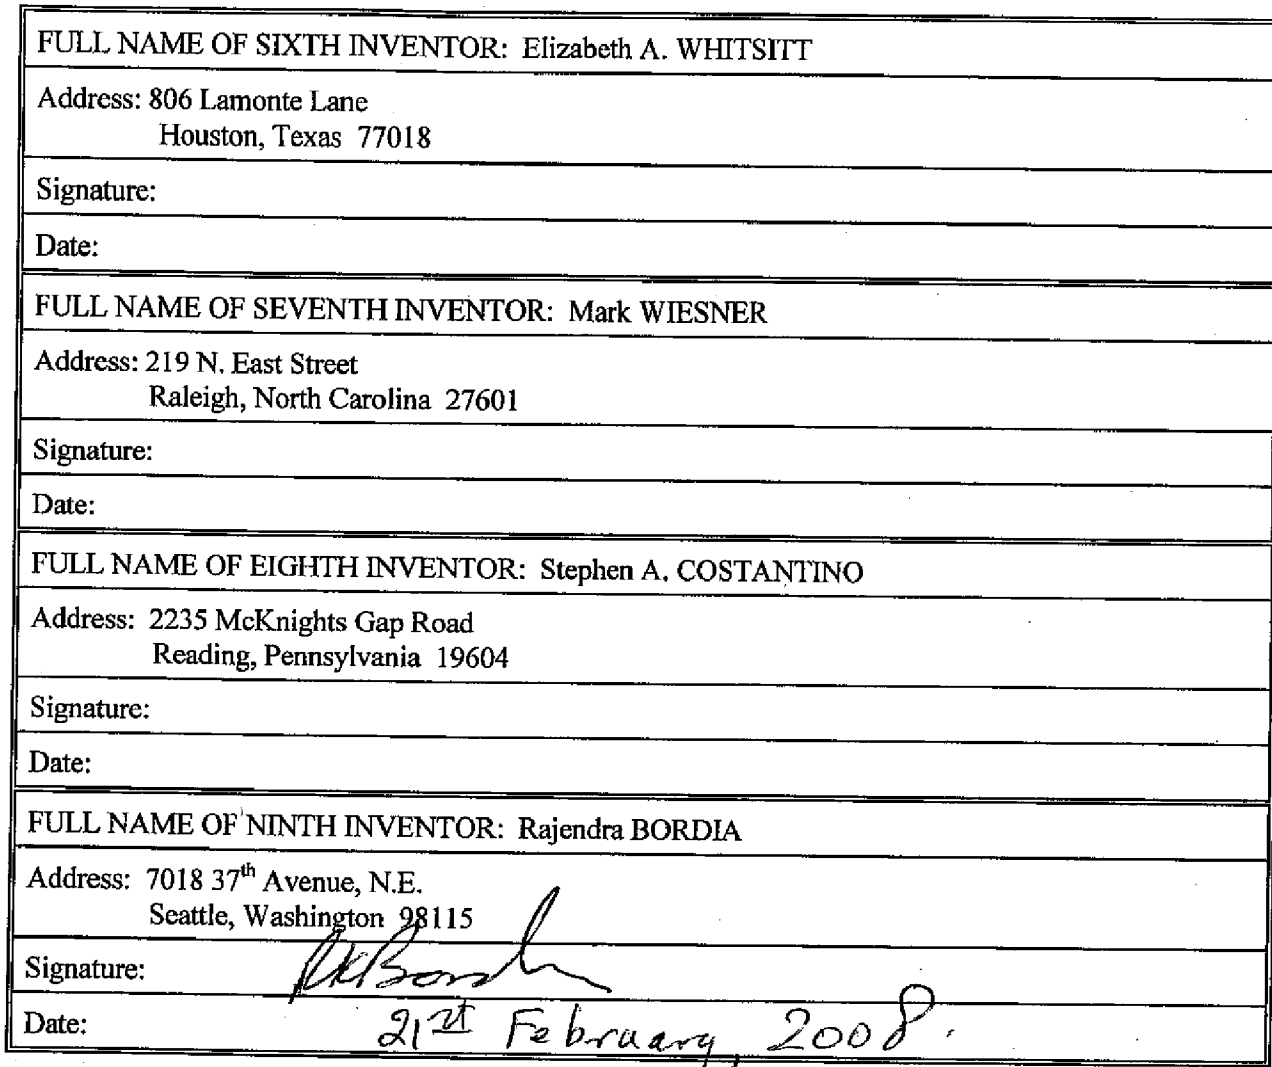 FULL NAME OF SIXTH INVENTOR: Elizabeth A. WHITSITT
Address: 806 Lamonte Lane
Houston, Texas 77018
Signature:
Date:
FULL NAME OF SEVENTH INVENTOR: Mark WIESNER
Address: 219 N. East Street
Raleigh, North Carolina 27601
Signature:
Date:
FULL NAME OF EIGHTH INVENTOR: Stephen A. COSTANTINO
Address: 2235 McKnights Gap Road
Reading, Pennsylvania 19604
Signature:
Date:
FULL NAME OF NINTH INVENTOR: Rajendra BORDIA
Address: 7018 37th Avenue, N.E.
Seattle, Washington 98115
Signature: RKBordia
Date: 21st February, 2008.